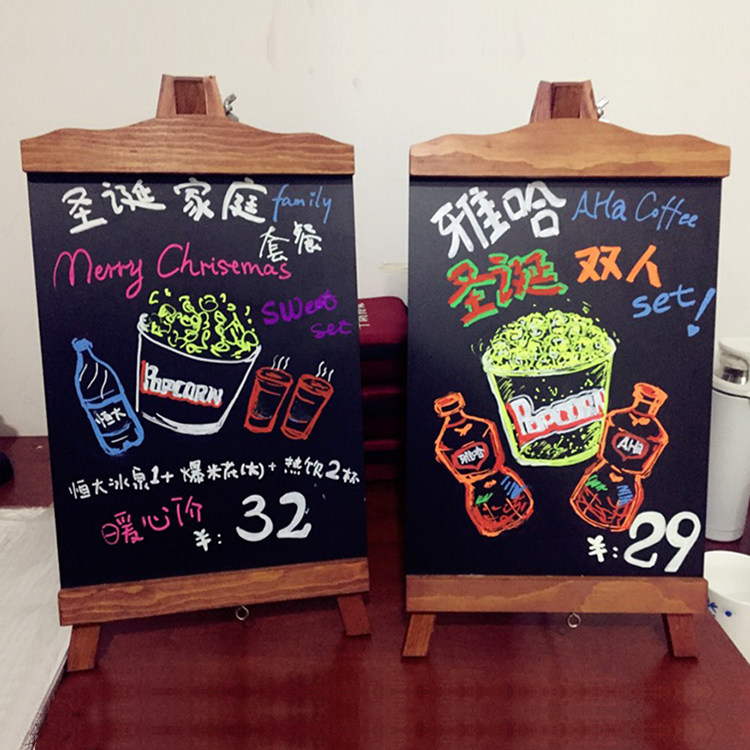 圣诞家庭 family
套餐
Merry Chrisemas
sweet
set
POPCORN
恒大
恒大冰泉1+爆米花(大)+热饮2杯
暖心价
¥:32
雅哈 AHa Coffee
圣诞 双人
set!
POPCORN
雅哈
AHa
¥:29